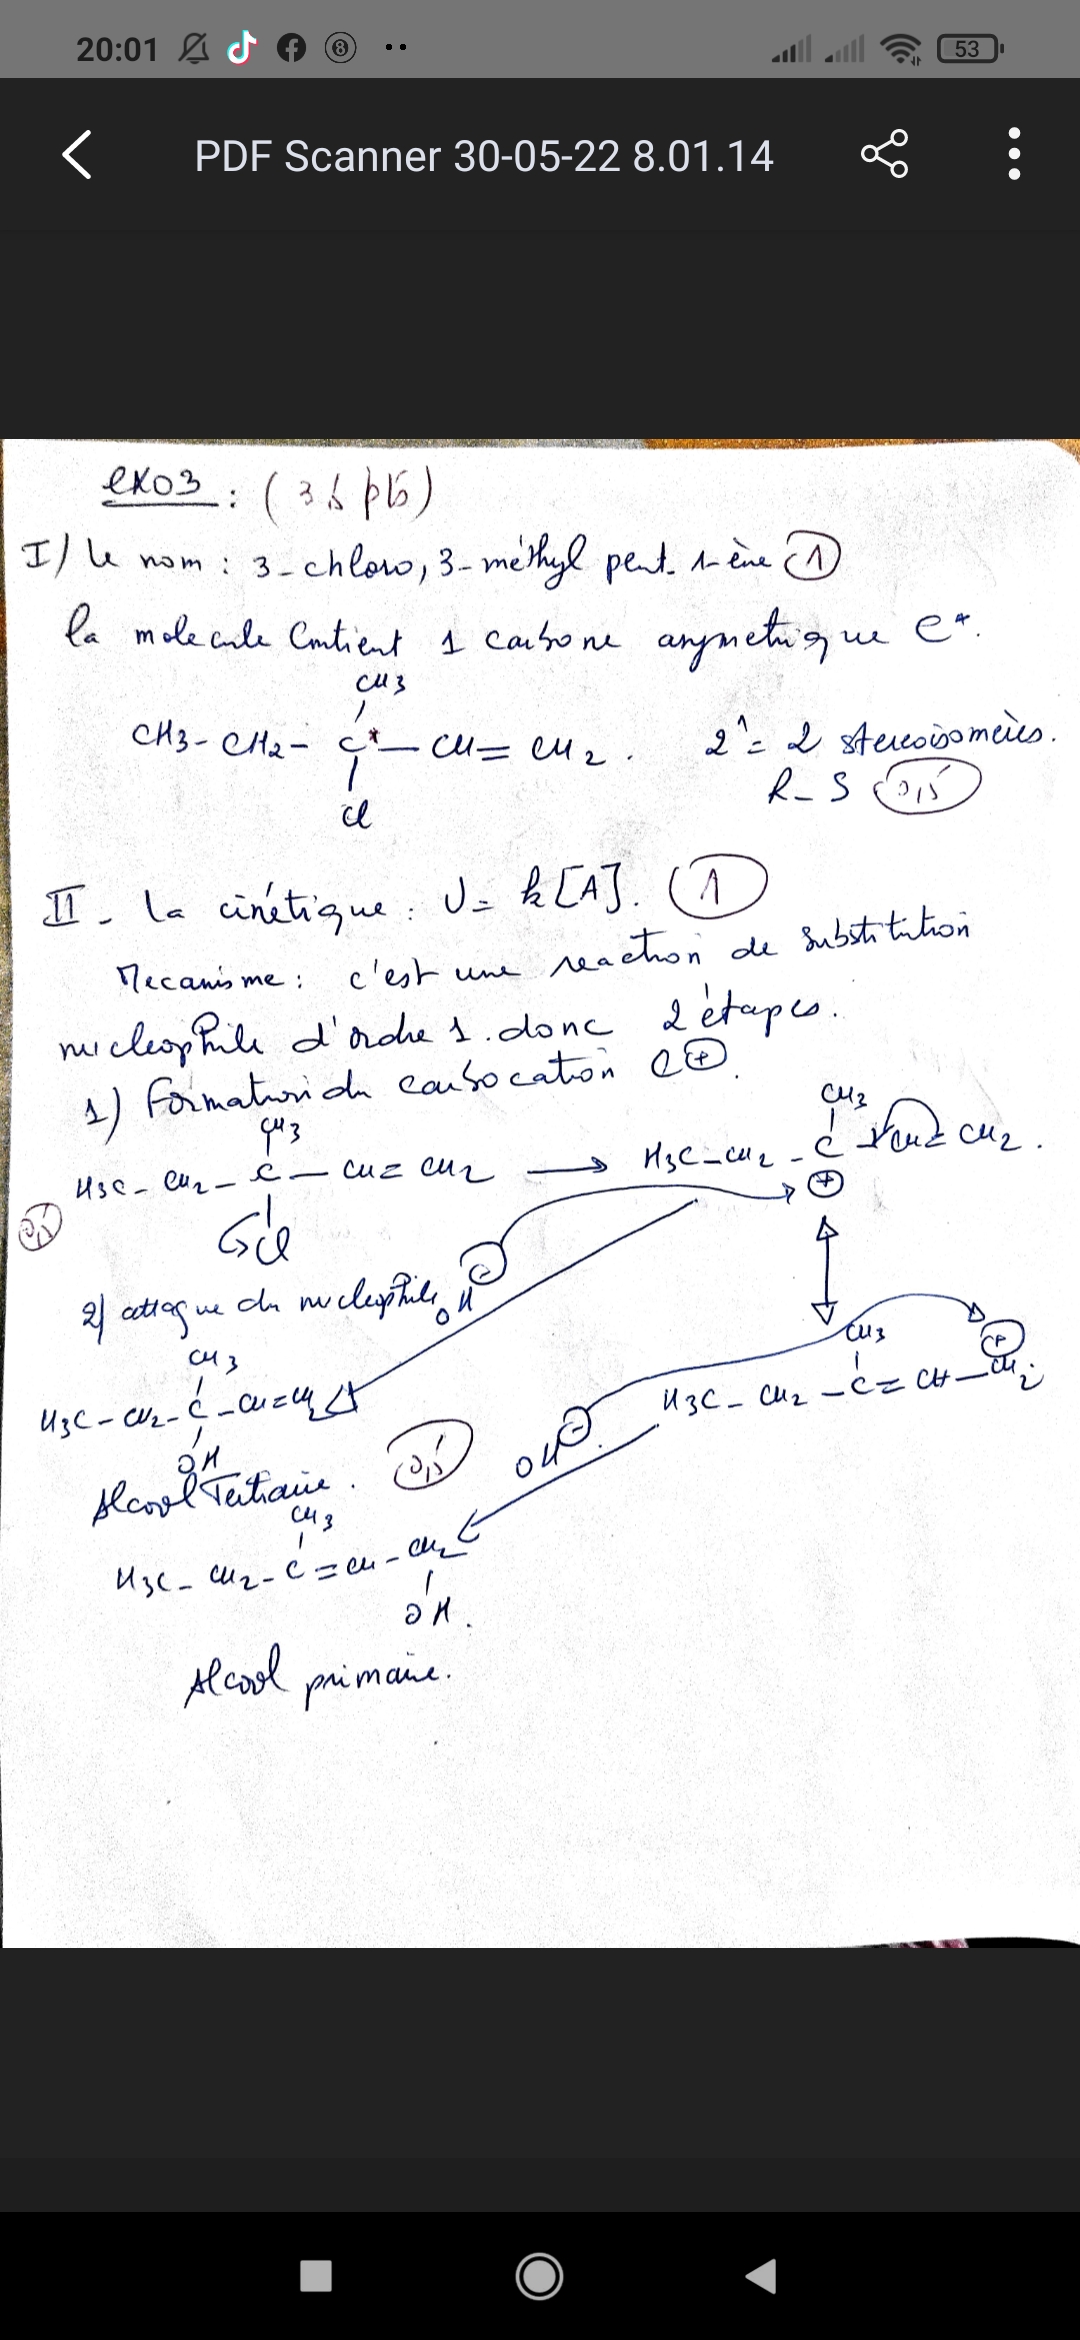 20:01 53
PDF Scanner 30-05-22 8.01.14
exo3 : (3,5 pts)
I/ le nom : 3-chloro, 3-méthyl pent-1-ène 1
la molecule Contient 1 carbone asymetrique C*.
CH3
CH3-CH2-C*-CH=CH2. 2^1=2 stereoisomères.
Cl
R-S 0,5
II- la cinétique : V= k[A]. 1
Mecanisme : c'est une reaction de substitution
nucleophile d'ordre 1. donc 2 étapes.
1) Formation du carbocation C⊕.
CH3
H3C-CH2-C-CH=CH2 → H3C-CH2-C-CH=CH2.
Cl
CH3
⊕
0,5
2) attaque du nucleophile OH⊖
CH3
H3C-CH2-C-CH=CH2
OH
Alcool Tertiaire. 0,5
CH3
H3C-CH2-C=CH-CH2
⊕
OH⊖
CH3
H3C-CH2-C=CH-CH2
OH.
Alcool primaire.